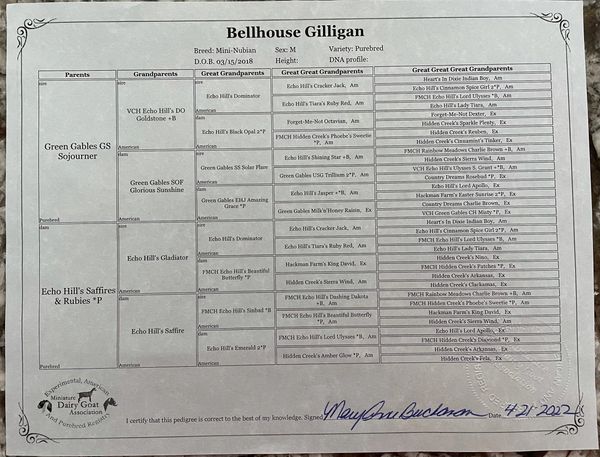 Bellhouse Gilligan
Breed: Mini-Nubian Sex: M Variety: Purebred
D.O.B. 03/15/2018 Height: DNA profile:
Parents Grandparents Great Grandparents Great Great Grandparents Great Great Great Grandparents
sire
Green Gables GS
Sojourner
Purebred
dam
Echo Hill's Saffires
& Rubies *P
Purebred
sire
VCH Echo Hill's DO
Goldstone +B
American
dam
Green Gables SOF
Glorious Sunshine
American
sire
Echo Hill's Gladiator
American
dam
Echo Hill's Saffire
American
sire
Echo Hill's Dominator
American
dam
Echo Hill's Black Opal 2*P
American
sire
Green Gables SS Solar Flare
American
dam
Green Gables EHJ Amazing
Grace *P
American
sire
Echo Hill's Dominator
American
dam
FMCH Echo Hill's Beautiful
Butterfly *P
American
sire
FMCH Echo Hill's Sinbad *B
American
dam
Echo Hill's Emerald 2*P
American
Echo Hill's Cracker Jack, Am
Echo Hill's Tiara's Ruby Red, Am
Forget-Me-Not Octavian, Am
FMCH Hidden Creek's Phoebe's Sweetie
*P, Am
Echo Hill's Shining Star +B, Am
Green Gables USG Trillium 2*P, Am
Echo Hill's Jasper +*B, Am
Green Gables Milk'n'Honey Raisin, Ex
Echo Hill's Cracker Jack, Am
Echo Hill's Tiara's Ruby Red, Am
Hackman Farm's King David, Ex
Hidden Creek's Sierra Wind, Am
FMCH Echo Hill's Dashing Dakota
+B, Am
FMCH Echo Hill's Beautiful Butterfly
*P, Am
Hidden Creek's Amber Glow *P, Am
Heart's In Dixie Indian Boy, Am
Echo Hill's Cinnamon Spice Girl 2*P, Am
FMCH Echo Hill's Lord Ulysses *B, Am
Echo Hill's Lady Tiara, Am
Forget-Me-Not Dexter, Ex
Hidden Creek's Sparkle Plenty, Ex
Hidden Creek's Reuben, Ex
Hidden Creek's Cinnamint's Tinker, Ex
FMCH Rainbow Meadows Charlie Brown +B, Am
Hidden Creek's Sierra Wind, Am
VCH Echo Hill's Ulysses S. Grant +*B, Am
Country Dreams Rosebud *P, Ex
Echo Hill's Lord Apollo, Ex
Hackman Farm's Easter Sunrise 2*P, Ex
Country Dreams Charlie Brown, Ex
VCH Green Gables CH Misty *P, Ex
Heart's In Dixie Indian Boy, Am
Echo Hill's Cinnamon Spice Girl 2*P, Am
FMCH Echo Hill's Lord Ulysses *B, Am
Echo Hill's Lady Tiara, Am
Hidden Creek's Nino, Ex
FMCH Hidden Creek's Patches *P, Ex
Hidden Creek's Arkansas, Ex
Hidden Creek's Clackamas, Ex
FMCH Rainbow Meadows Charlie Brown +B, Am
FMCH Hidden Creek's Phoebe's Sweetie *P, Am
Hackman Farm's King David, Ex
Hidden Creek's Sierra Wind, Am
Echo Hill's Lord Apollo, Ex
FMCH Hidden Creek's Diamond *P, Ex
Hidden Creek's Arkansas, Ex
Hidden Creek's Fela, Ex
Experimental, American
Miniature
Dairy Goat
Association
And Purebred Registry
I certify that this pedigree is correct to the best of my knowledge. Signed Mary Ann Buchanan Date 4-21-2022